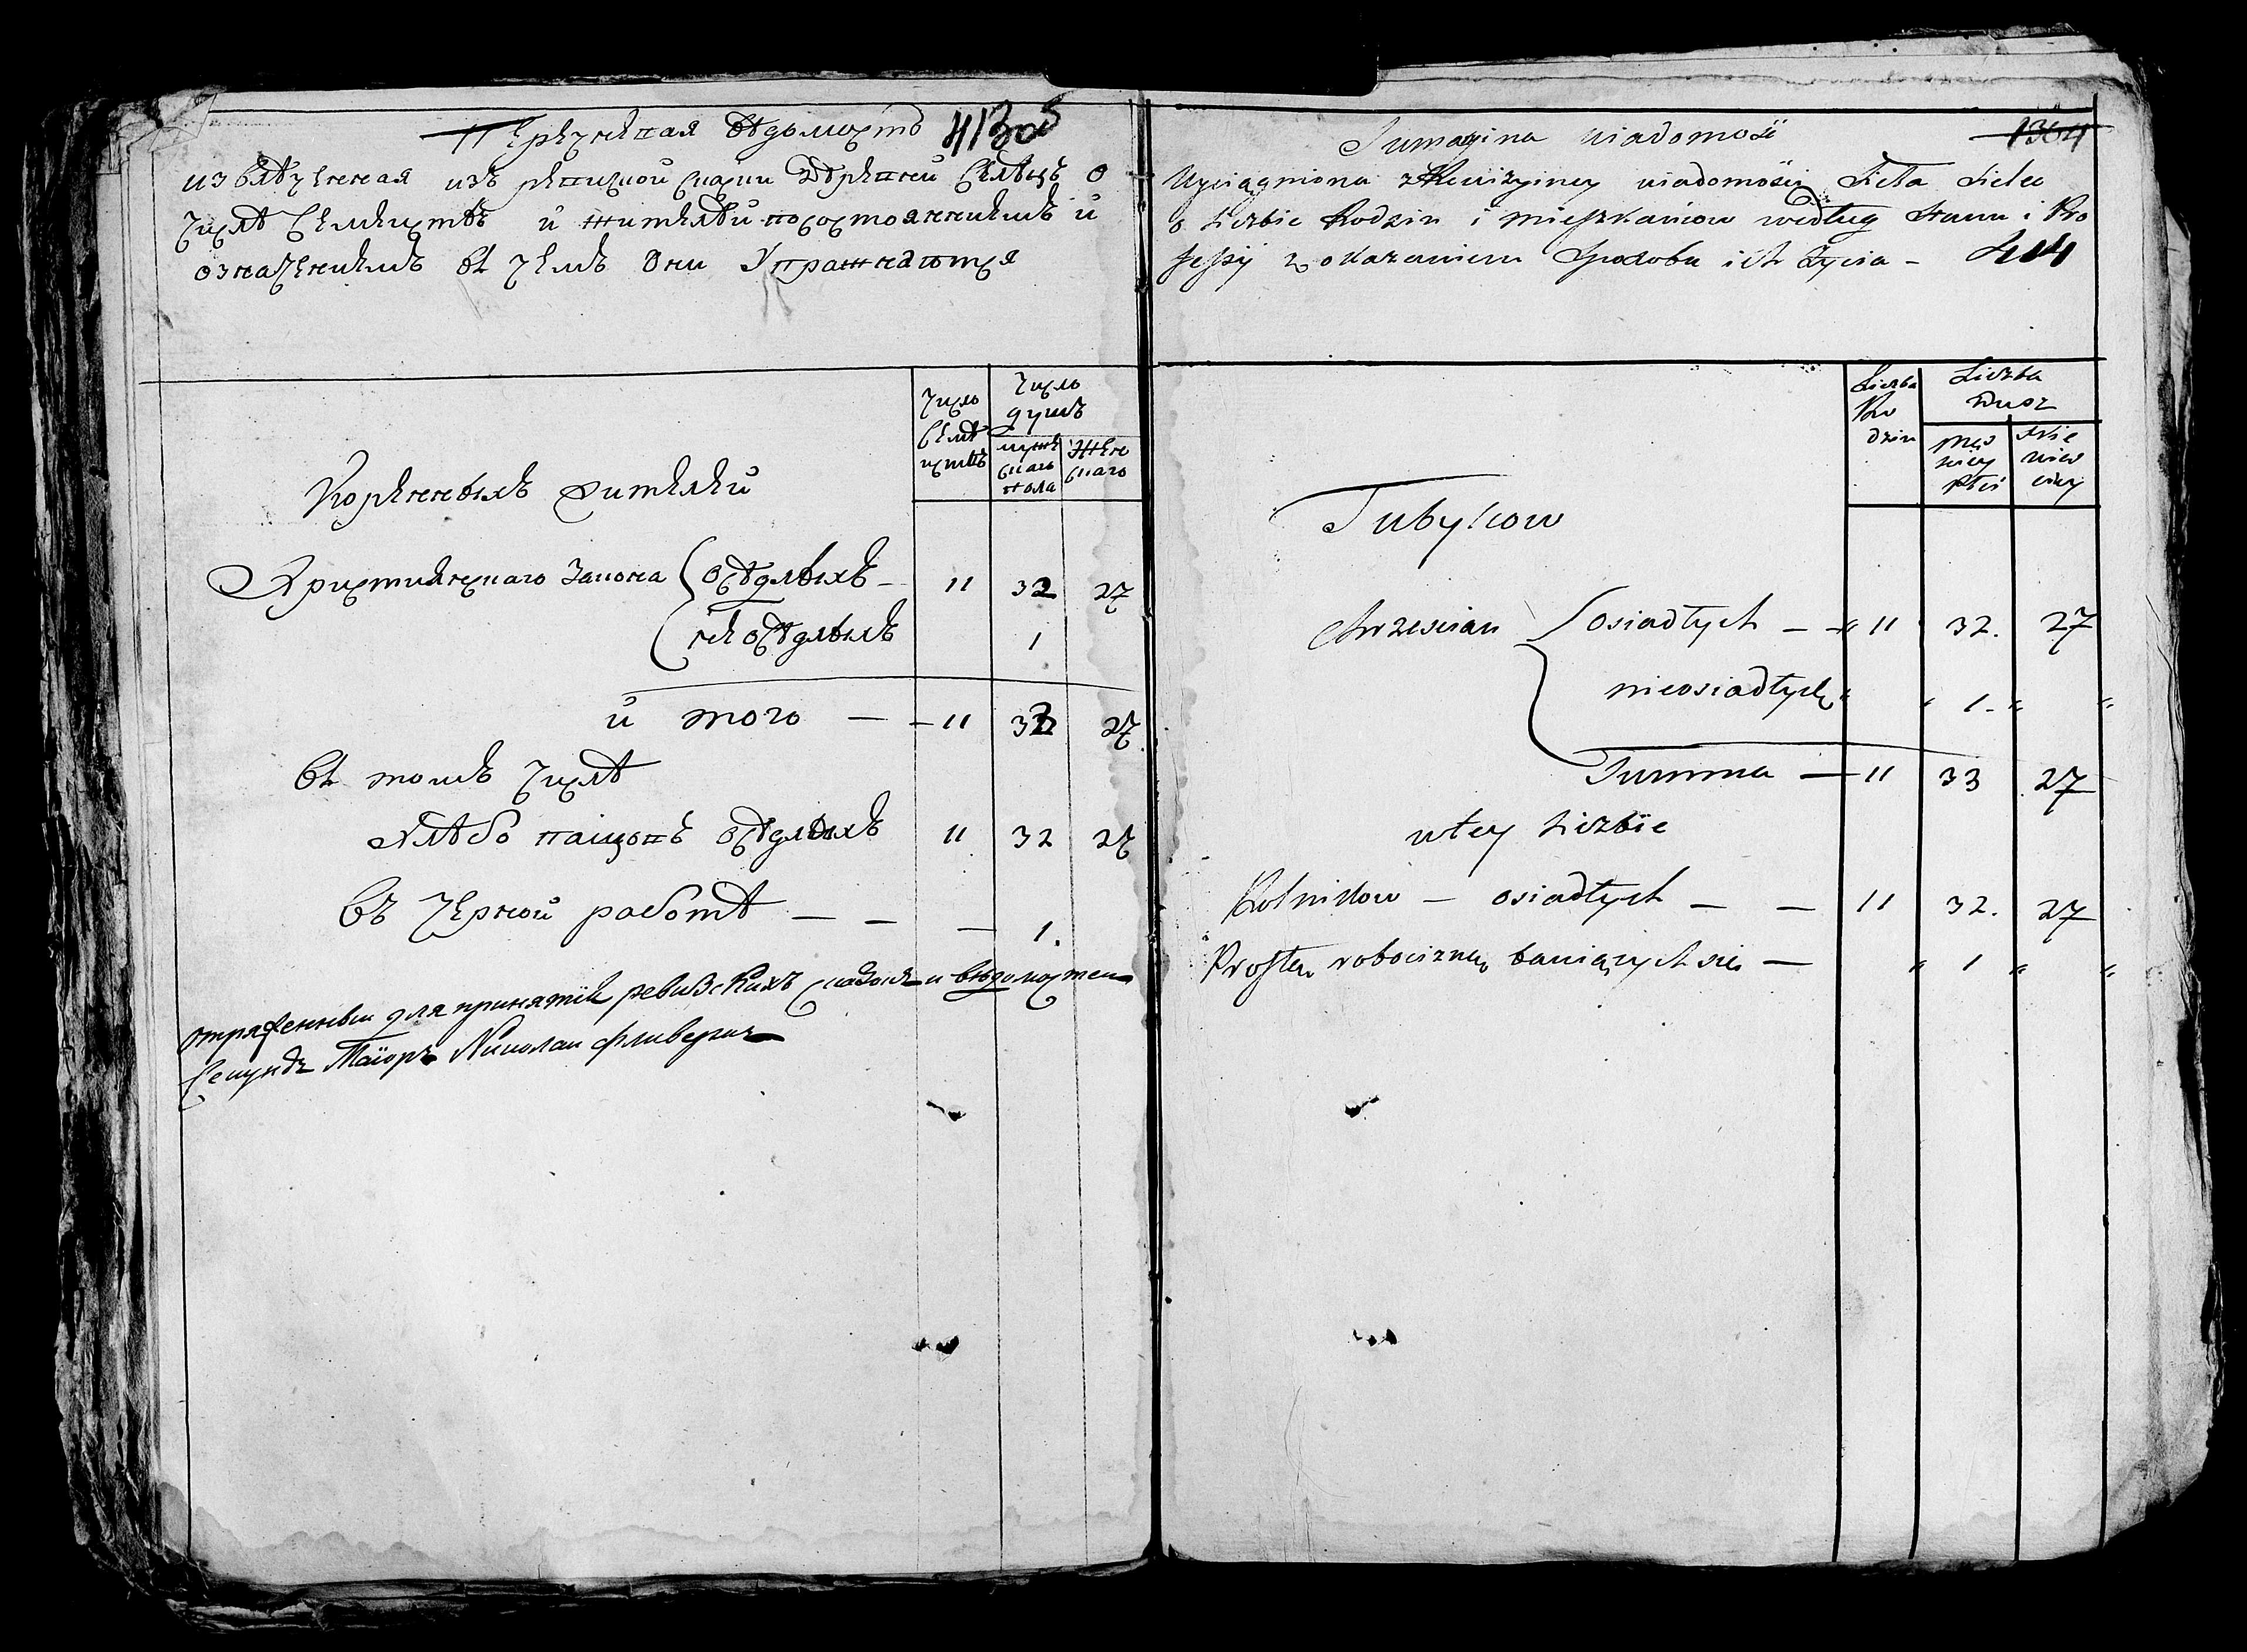 Перечневая ведомость 413об
извлеченная изъ ревизкой скаски деревни Селецъ о
числе семействъ и жителей по состояниемъ и
означениемъ въ чемъ они упражнаются
Число семействъ
Число душъ
мужескаго пола
женскаго
Коренныхъ жителей
Християнскаго закона оседлыхъ — 11 32 27
не оседлыхъ 1
и того — 11 33 27
въ томъ числе
хлебопашцовъ оседлыхъ 11 32 27
въ черной работе — — — 1.
отряженный для принятия ревизскихъ сказокъ и ведомостей
секундъ маиоръ Николаи
1364
Sumaryina wiadomość
wyciągniona z Rewizyiney wiadomości Sioła Sielec
o Liczbie Rodzin i mieszkańcow według Stanu i Pro
fessyi z okazaniem Sposobu ich Życia — 414
Liczba Rodzin
Liczba Dusz
męskiey płci
Tubylcow
chrzescian osiadłych — 11 32. 27
nieosiadłych " " 1. " "
Summa — 11 33 27
w tey Liczbie
Rolnikow — osiadłych — — 11 32. 27
Prostą robocizną bawiących się — " 1 " "